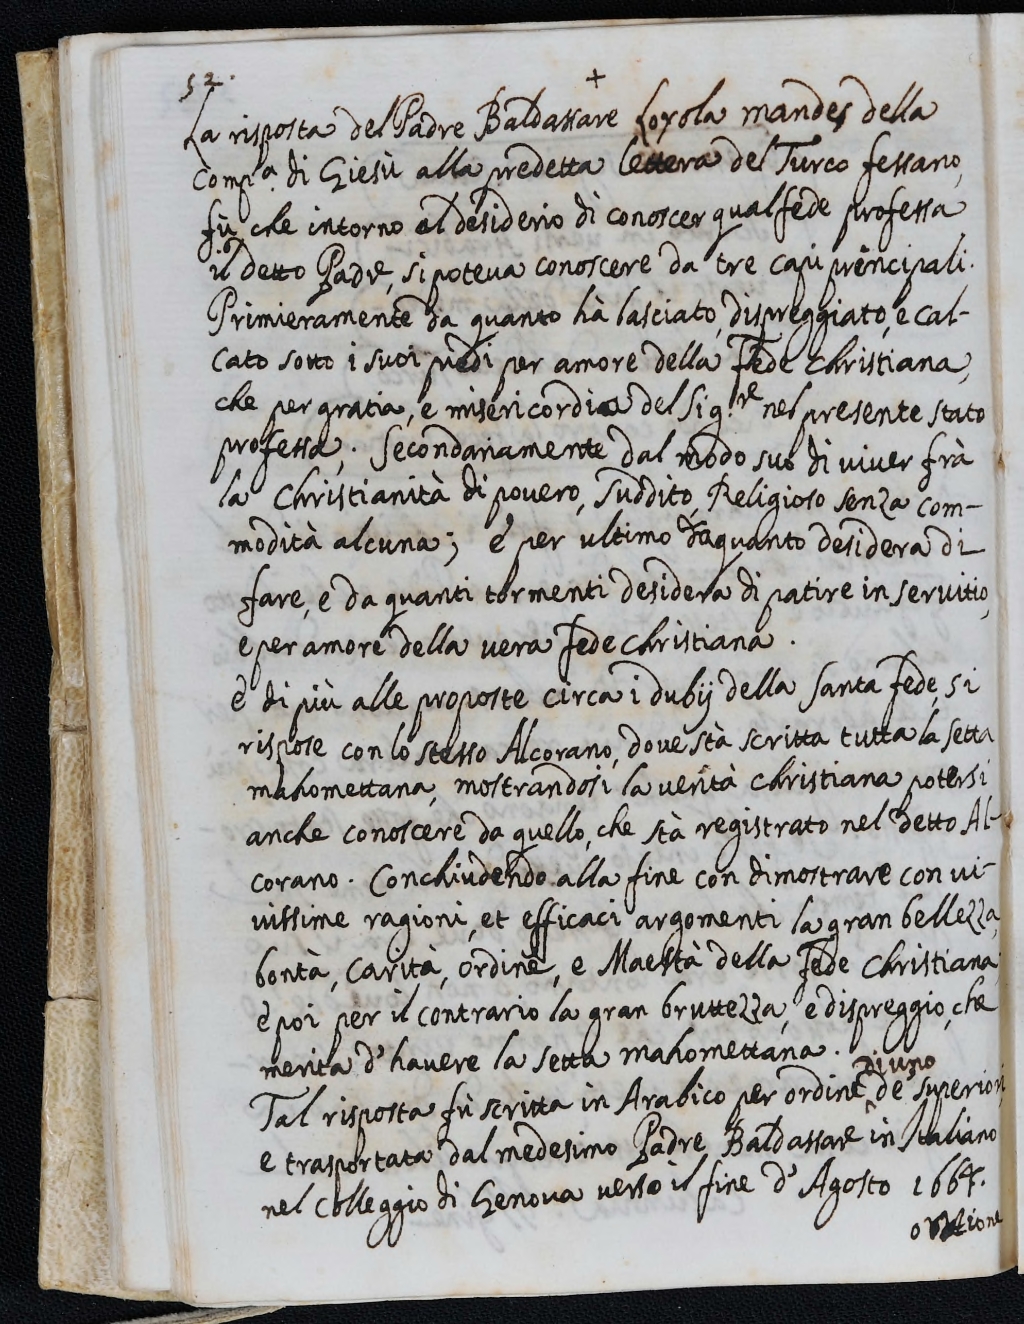 52.
+
La risposta del Padre Baldassare Loyola mandes della
Comp.ª di Giesù alla predetta lettera del Turco fessano,
fù che intorno al desiderio di conoscer qual fede professa
il detto Padre, si poteva conoscere da tre capi principali.
Primieramente da quanto hà lasciato, dispreggiato, e cal-
cato sotto i suoi piedi per amore della Fede Christiana,
che per gratia, e misericordia del Sig.re nel presente stato
professa. Secondariamente dal modo suo di viver frà
la Christianità di povero, suddito, Religioso senza com-
modità alcuna; e per ultimo da quanto desidera di
fare, e da quanti tormenti desidera di patire in servitio,
e per amore della vera Fede Christiana.
E di più alle proposte circa i dubij della Santa Fede, si
rispose con lo stesso Alcorano, dove stà scritta tutta la setta
mahomettana, mostrandosi la verità Christiana potersi
anche conoscere da quello, che stà registrato nel detto Al-
corano. Conchiudendo alla fine con dimostrare con vi-
vissime ragioni, et efficaci argomenti la gran bellezza,
bontà, carità, ordine, e Maestà della Fede Christiana,
e poi per il contrario la gran bruttezza, e dispreggio, che
merita d'havere la setta mahomettana.
di uno
Tal risposta fù scritta in Arabico per ordine de' superiori,
e trasportata dal medesimo Padre Baldassare in Italiano
nel Colleggio di Genova verso il fine d'Agosto 1664.